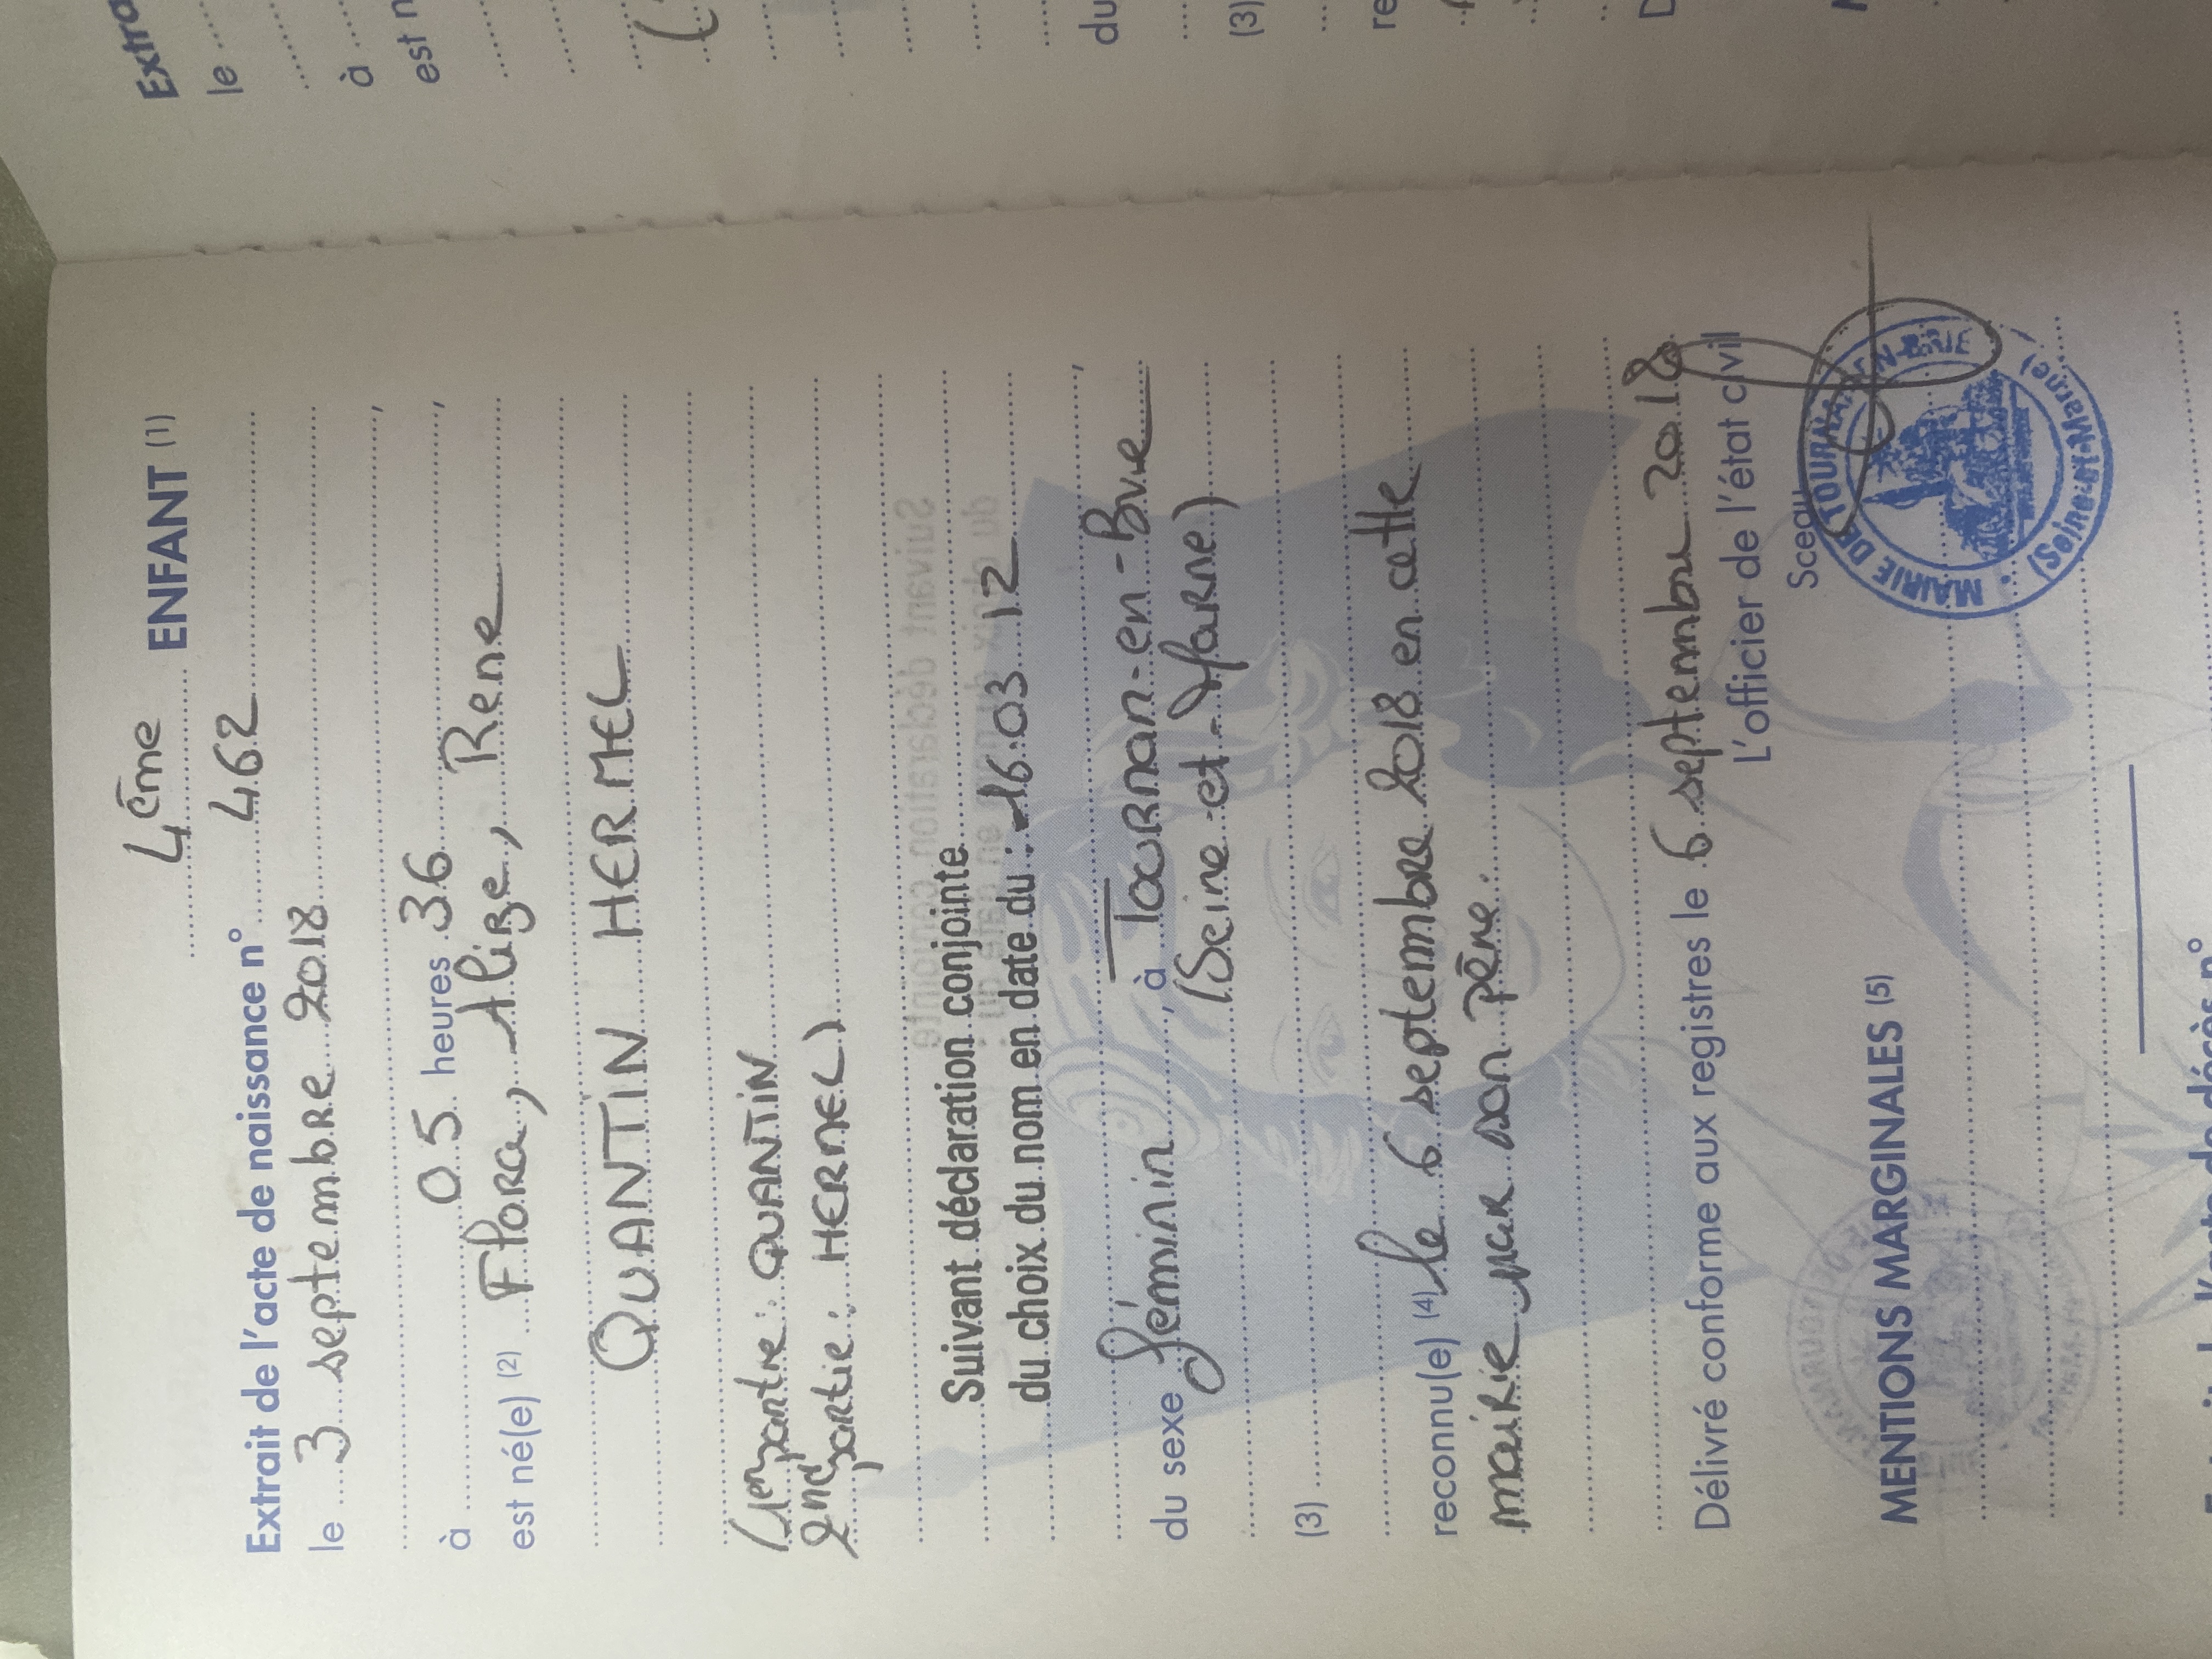 4ème ENFANT (1)
Extrait de l'acte de naissance n° 462
le 3 septembre 2018
à 05 heures 36
est né(e) (2) Flora, Alize, Rene
QUANTIN HERMEL
(1er partie : QUANTIN
2nd partie : HERMEL)
Suivant déclaration conjointe
du choix du nom en date du : 16.03 12
du sexe féminin, à Tournan-en-Brie
(Seine-et-Marne)
(3)
reconnu(e) (4) le 6 septembre 2018 en cette
mairie par son père.
Délivré conforme aux registres le 6 septembre 2018
L'officier de l'état civil
Sceau
MAIRIE DE TOURNAN-EN-BRIE
(Seine-et-Marne)
MENTIONS MARGINALES (5)
Extra
le
à
est n
(
du
(3)
re
D